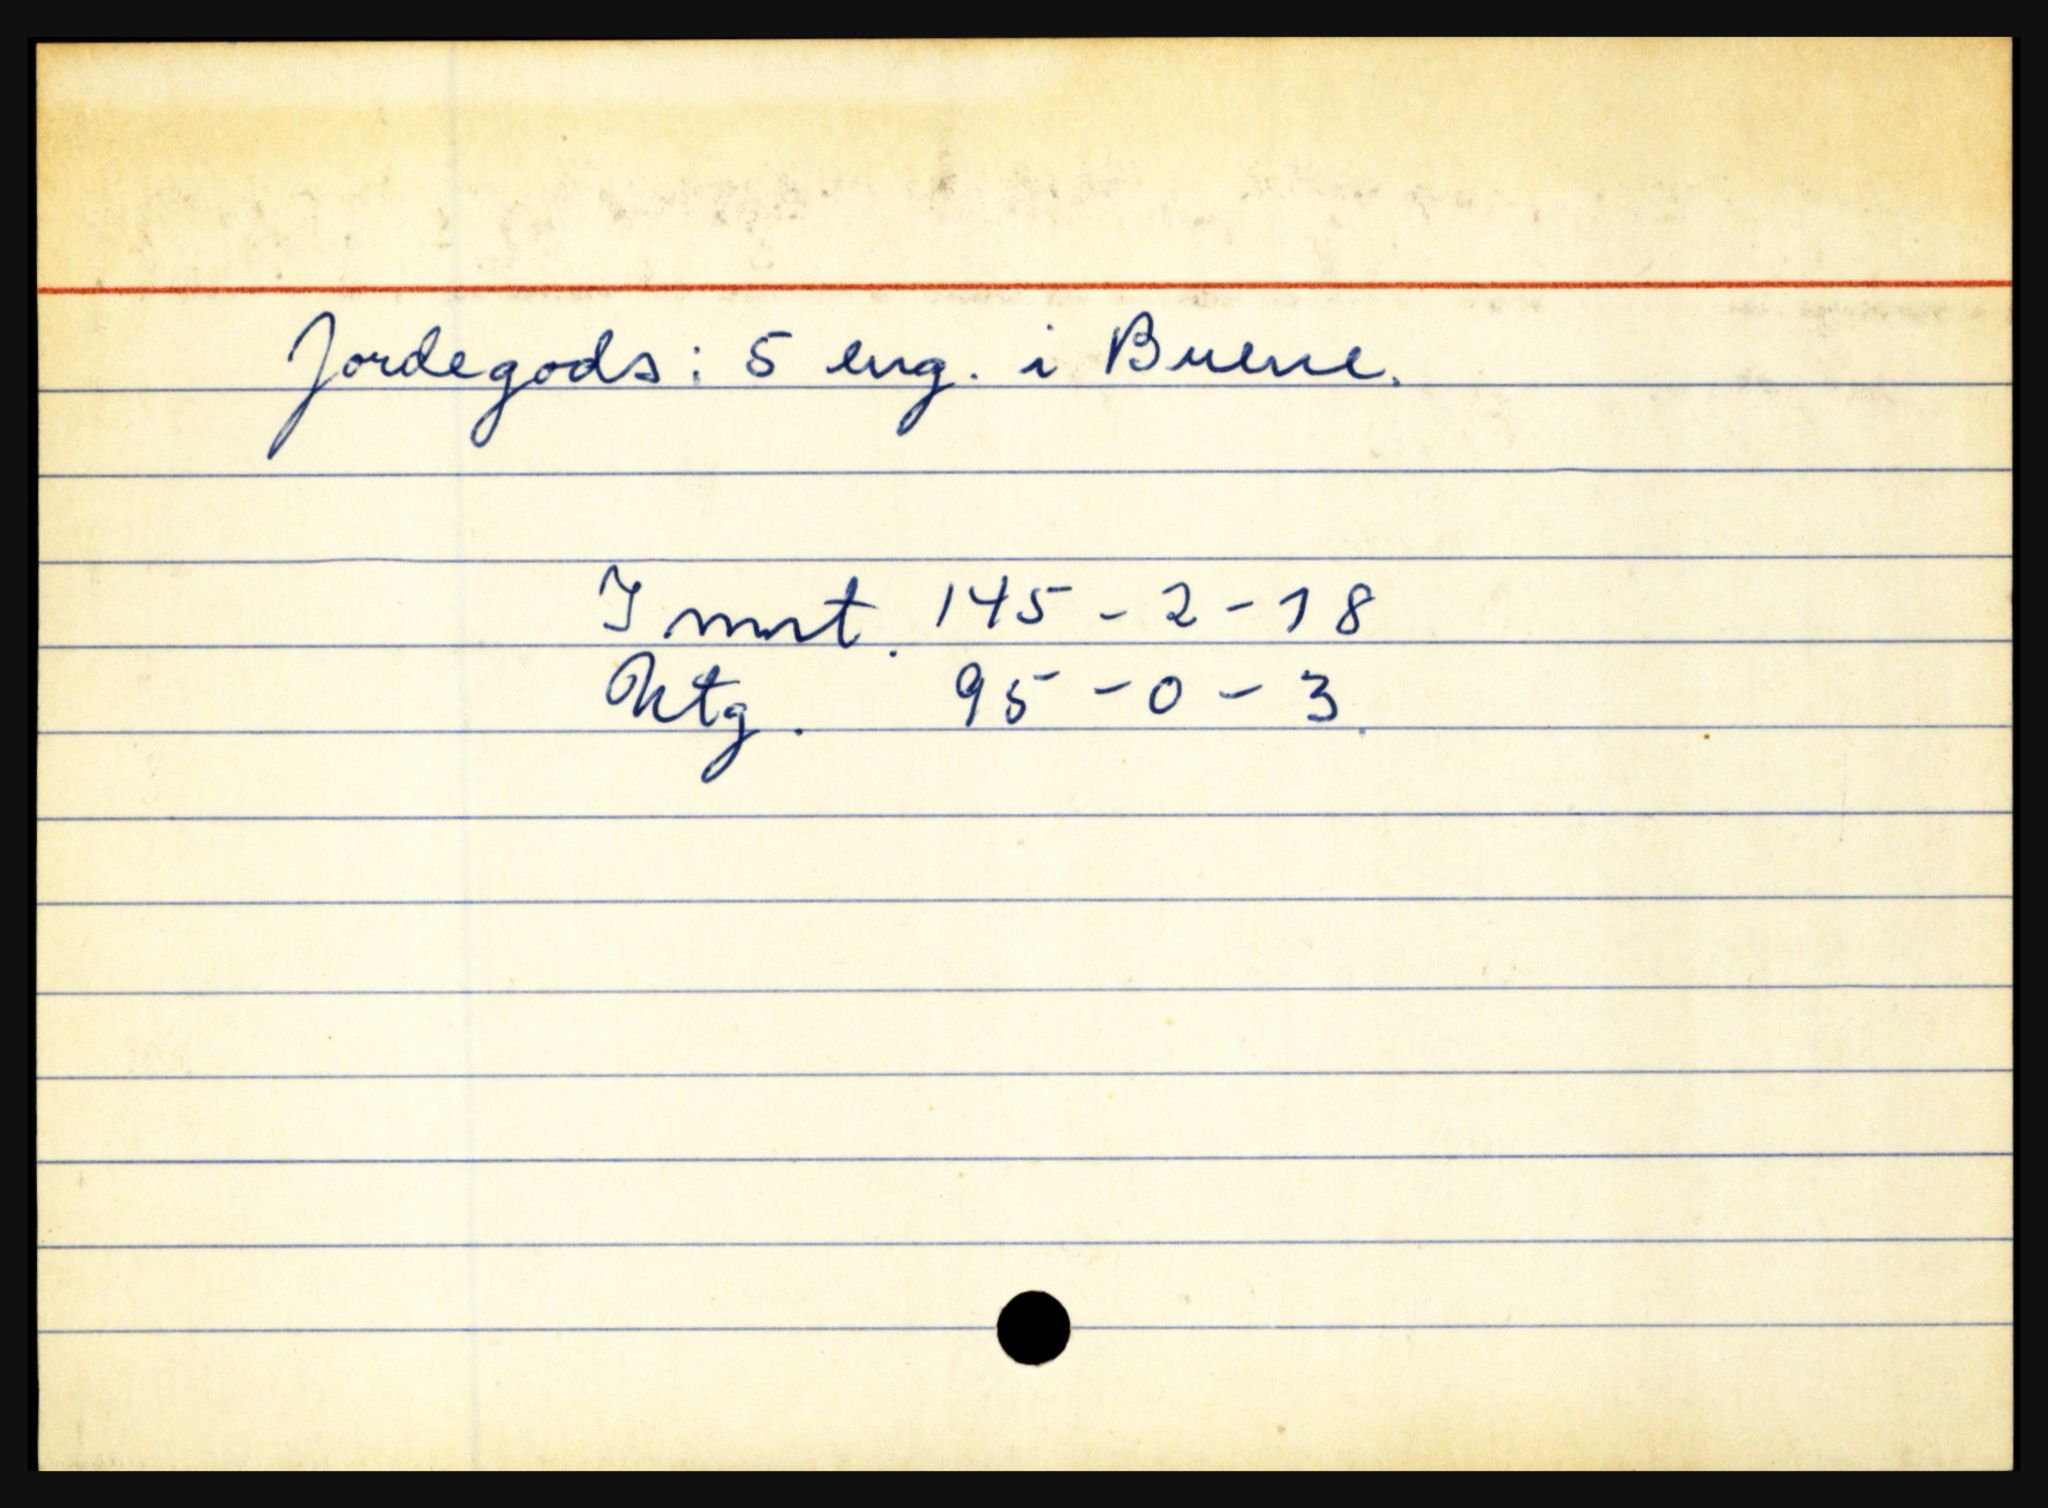 Jordegods: 5 eng. i Buene.
I mrt. 145 - 2 - 18
Ntg. 95 - 0 - 3.